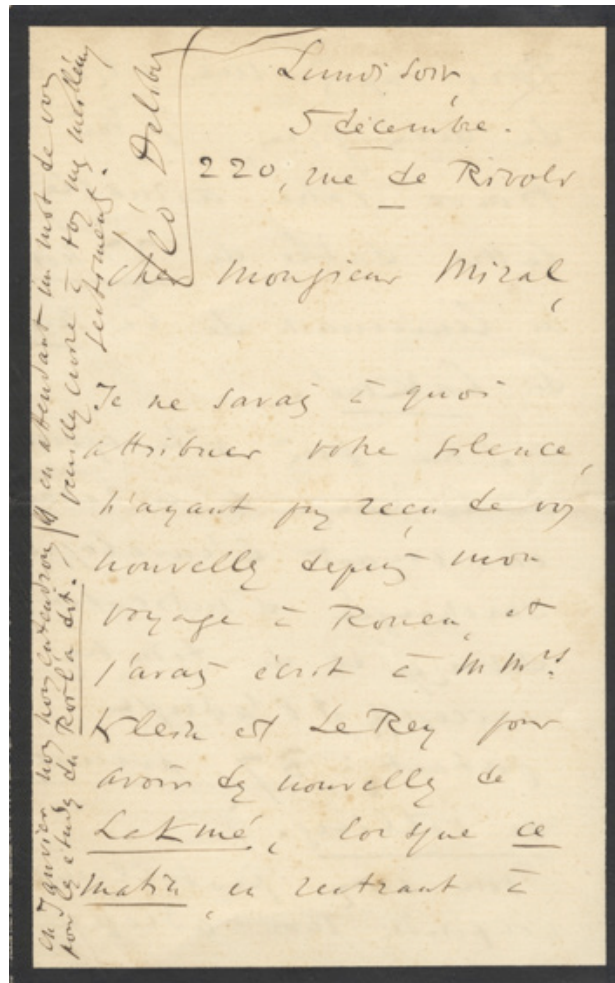 Lundi soir,
5 décembre.
220, rue de Rivoli
Cher Monsieur Miral,
Je ne savais à quoi
attribuer votre silence,
n'ayant pas reçu de vos
nouvelles depuis mon
voyage à Rouen, et
j'avais écrit à MMrs
Klein et Le Rey pour
avoir des nouvelles de
Lakmé, lorsque ce
matin, en rentrant à
en Janvier nous nous entendrons
pour les études du Roi l'a dit.
en attendant un mot de vous
veuillez croire à tous mes meilleurs
sentiments.
Léo Delibes